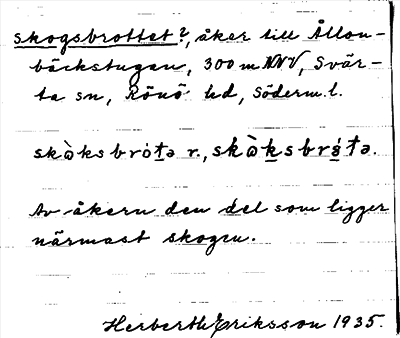 skogsbrottet?, åker till Ållon-
bäckstugan, 300 m NNV, Svär-
ta sn, Rönö hd, Söderm. l.
skὼksbrȯt̲ə r., skὼk̲sbrṩŧə.
Av åkern den del som ligger
närmast skogen.
Herberth Eriksson 1935.